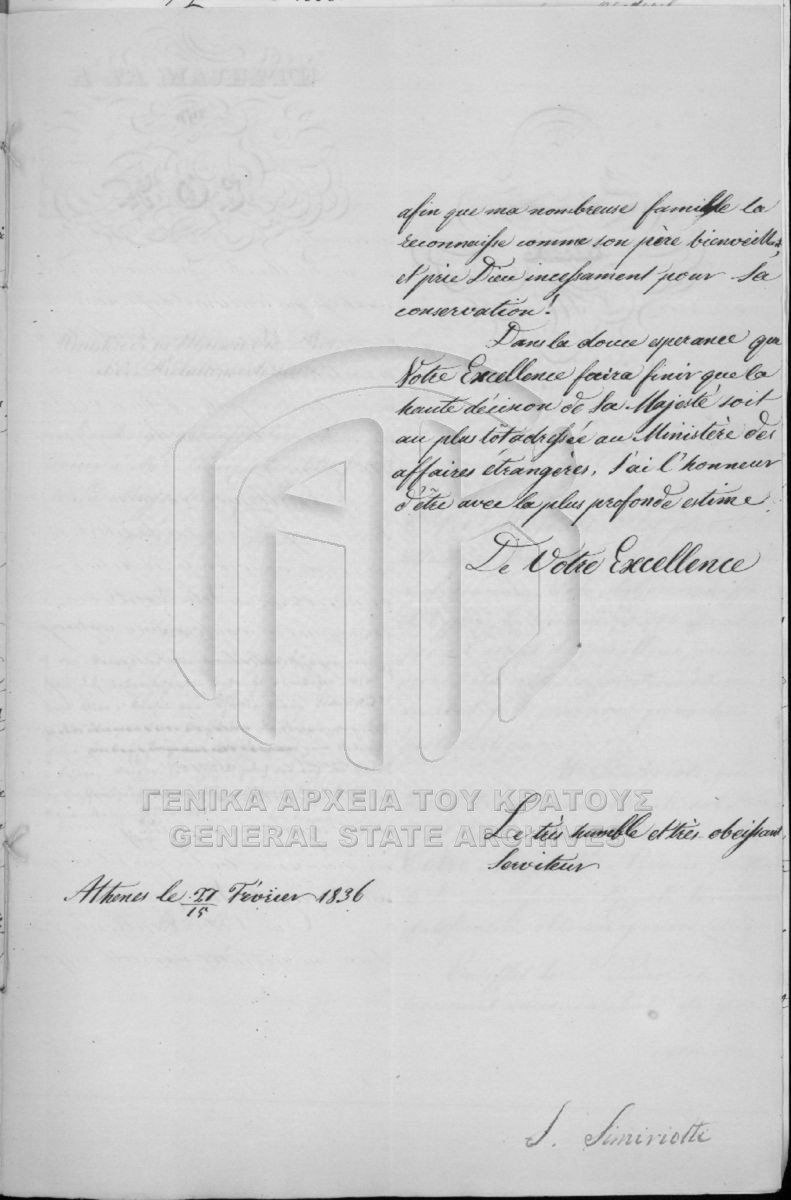 afin que ma nombreuse famille la
reconnaisse comme son père bienveillant,
et prie Dieu incessament pour Sa
conservation!
Dans la douce esperance que
Votre Excellence faira finir que la
haute décison de Sa Majesté soit
au plus tôt adressée au Ministère des
affaires étrangères, J'ai l'honneur
d'être avec la plus profonde estime
De Votre Excellence
ΓΕΝΙΚΑ ΑΡΧΕΙΑ ΤΟΥ ΚΡΑΤΟΥΣ
GENERAL STATE ARCHIVES
Le très humble et très obeissant
Serviteur
Athenes le 27/15 Février 1836
S.